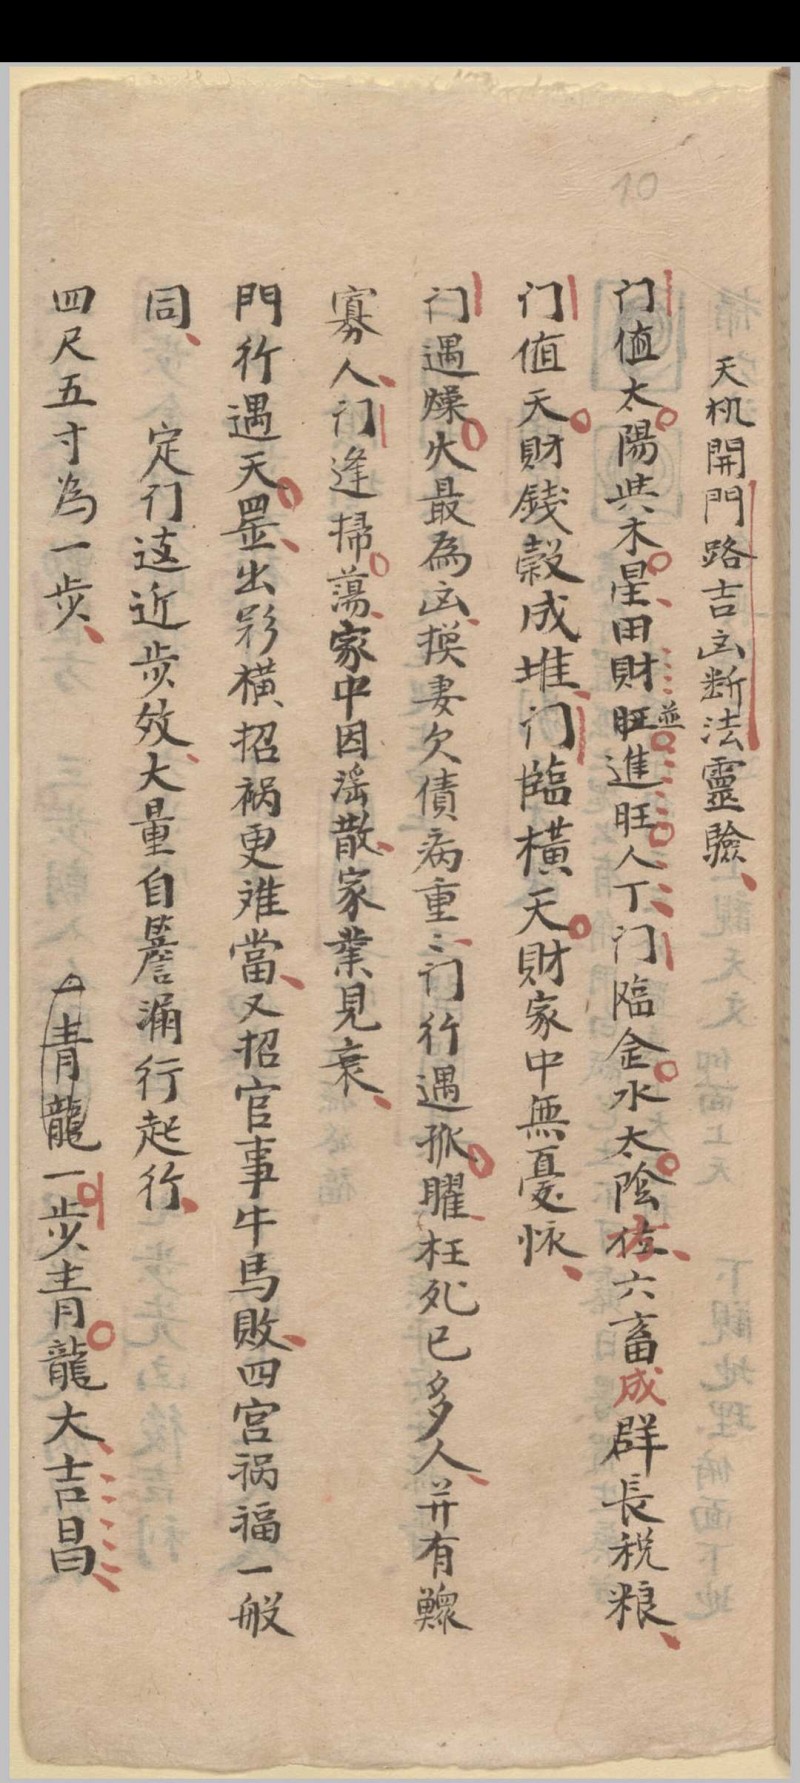 10
天机開門路吉凶断法靈驗
门值太陽共木星田財並旺進旺人丁门臨金水太陰位六畜成群長税粮
门值天財錢穀成堆门臨橫天財家中無憂
门遇燥火最為凶損妻欠債病重〻门行遇孤曜枉死已多人并有鰥
寡人门逢掃蕩家中因滛散家業見衰
門行遇天罡出彩橫招禍更难當又招官事牛馬敗四宫禍福一般
同 定门遠近步效大量自簷滴行起行
四尺五寸為一步 一青龍一步青龍大吉昌